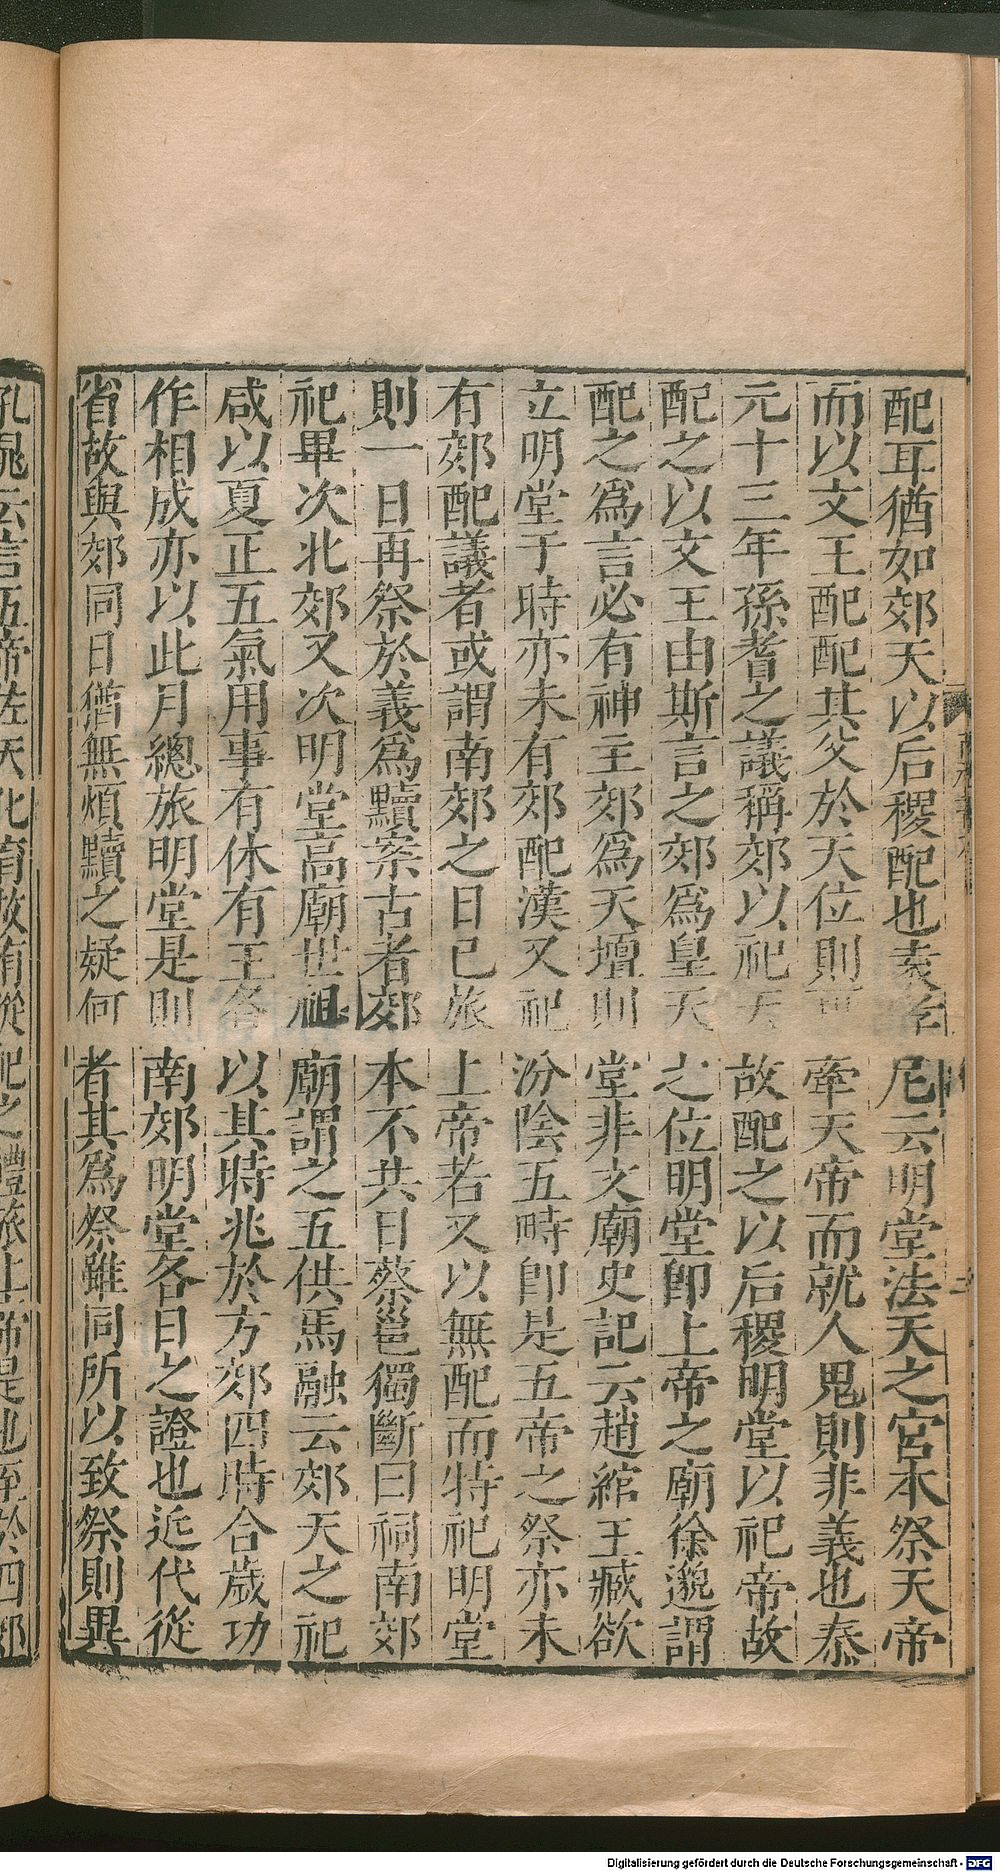 配耳猶如郊天以后稷配也袁孝尼云明堂法天之宮本祭天帝
而以文王配配其父於天位則可牽天帝而就人鬼則非義也泰
元十三年孫耆之議稱郊以祀天故配之以后稷明堂以祀帝故
配之以文王由斯言之郊爲皇天之位明堂卽上帝之廟徐邈謂
配之爲言必有神主郊爲天壇則堂非文廟史記云趙綰王臧欲
立明堂于時亦未有郊配漢又祀汾陰五畤卽是五帝之祭亦未
有郊配議者或謂南郊之日已旅上帝若又以無配而特祀明堂
則一日再祭於義爲黷案古者郊本不共日蔡邕獨斷曰祠南郊
祀畢次北郊又次明堂高廟世祖廟謂之五供馬融云郊天之祀
咸以夏正五氣用事有休有王各以其時兆於方郊四時合歲功
作相成亦以此月總旅明堂是則南郊明堂各日之證也近代從
省故與郊同日猶無煩黷之疑何者其爲祭雖同所以致祭則異
孔晁云言五帝佐天化育故有從祀之禮旅上帝是也至於四郊
Digitalisierung gefördert durch die Deutsche Forschungsgemeinschaft - DFG